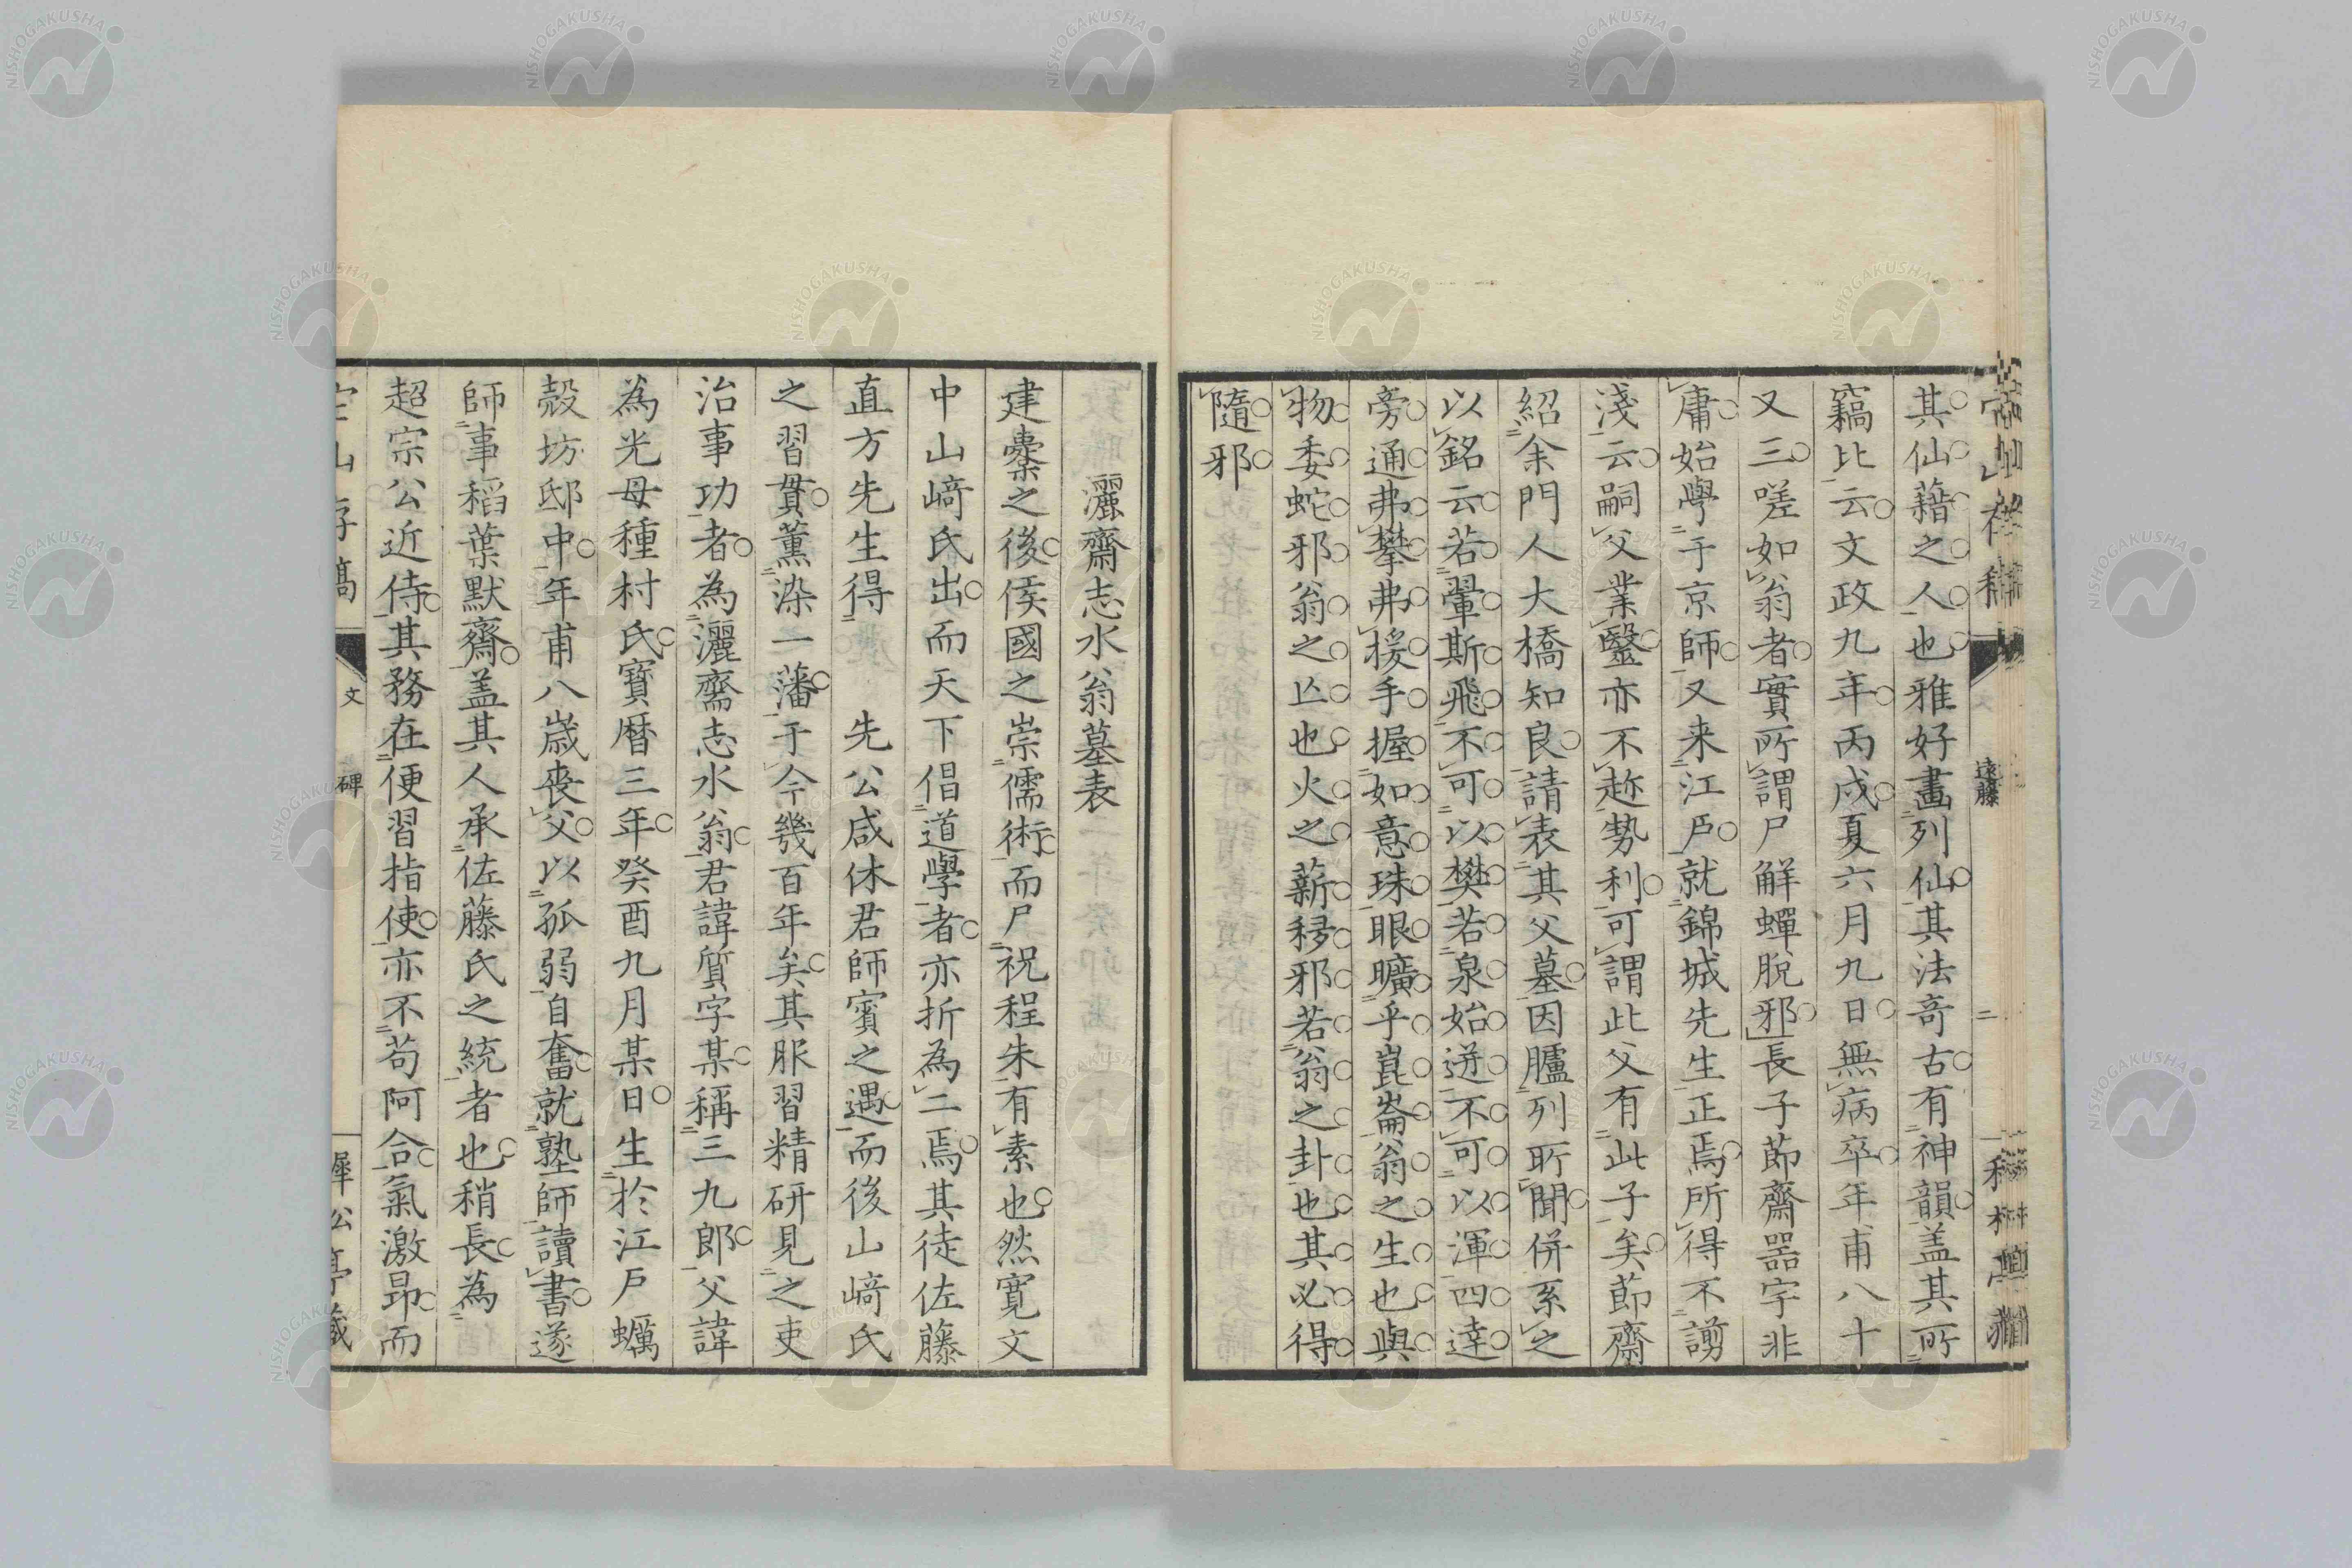 其仙藉之人也雅好畫列仙其法奇古有神韻盖其所
竊比云文政九年丙戌夏六月九日無病卒年甫八十
又三嗟如翁者實所謂尸解蟬脫邪長子莭齋噐字非
庸始學于京師又来江戶就錦城先生正焉所得不謭
淺云嗣父業毉亦不趂勢利可謂此父有此子矣莭齋
紹余門人大橋知良請表其父墓因臚列所聞併系之
以銘云若翬斯飛不可以樊若泉始迸不可以渾四達
旁通弗攀弗援手握如意珠眼曠乎崑崙翁之生也與
物委蛇邪翁之亾也火之薪穆邪若翁之卦也其必得
隨邪
灑齋志水翁墓表
建櫜之後侯國之崇儒術而尸祝程朱有素也然寬文
中山﨑氏出而天下倡道學者亦折為二焉其徒佐藤
直方先生得 先公咸休君師賓之遇而後山﨑氏
之習貫薫染一藩于今幾百年矣其服習精研見之吏
治事功者為灑齋志水翁君諱質字某稱三九郎父諱
為光母種村氏寶曆三年癸酉九月某日生於江戶蠣
殼坊邸中年甫八歲喪父以孤弱自奮就塾師讀書遂
師事稻葉默齋盖其人承佐藤氏之統者也稍長為
超宗公近侍其務在便習指使亦不苟阿合氣激昂而
文
碑
遠藤
二